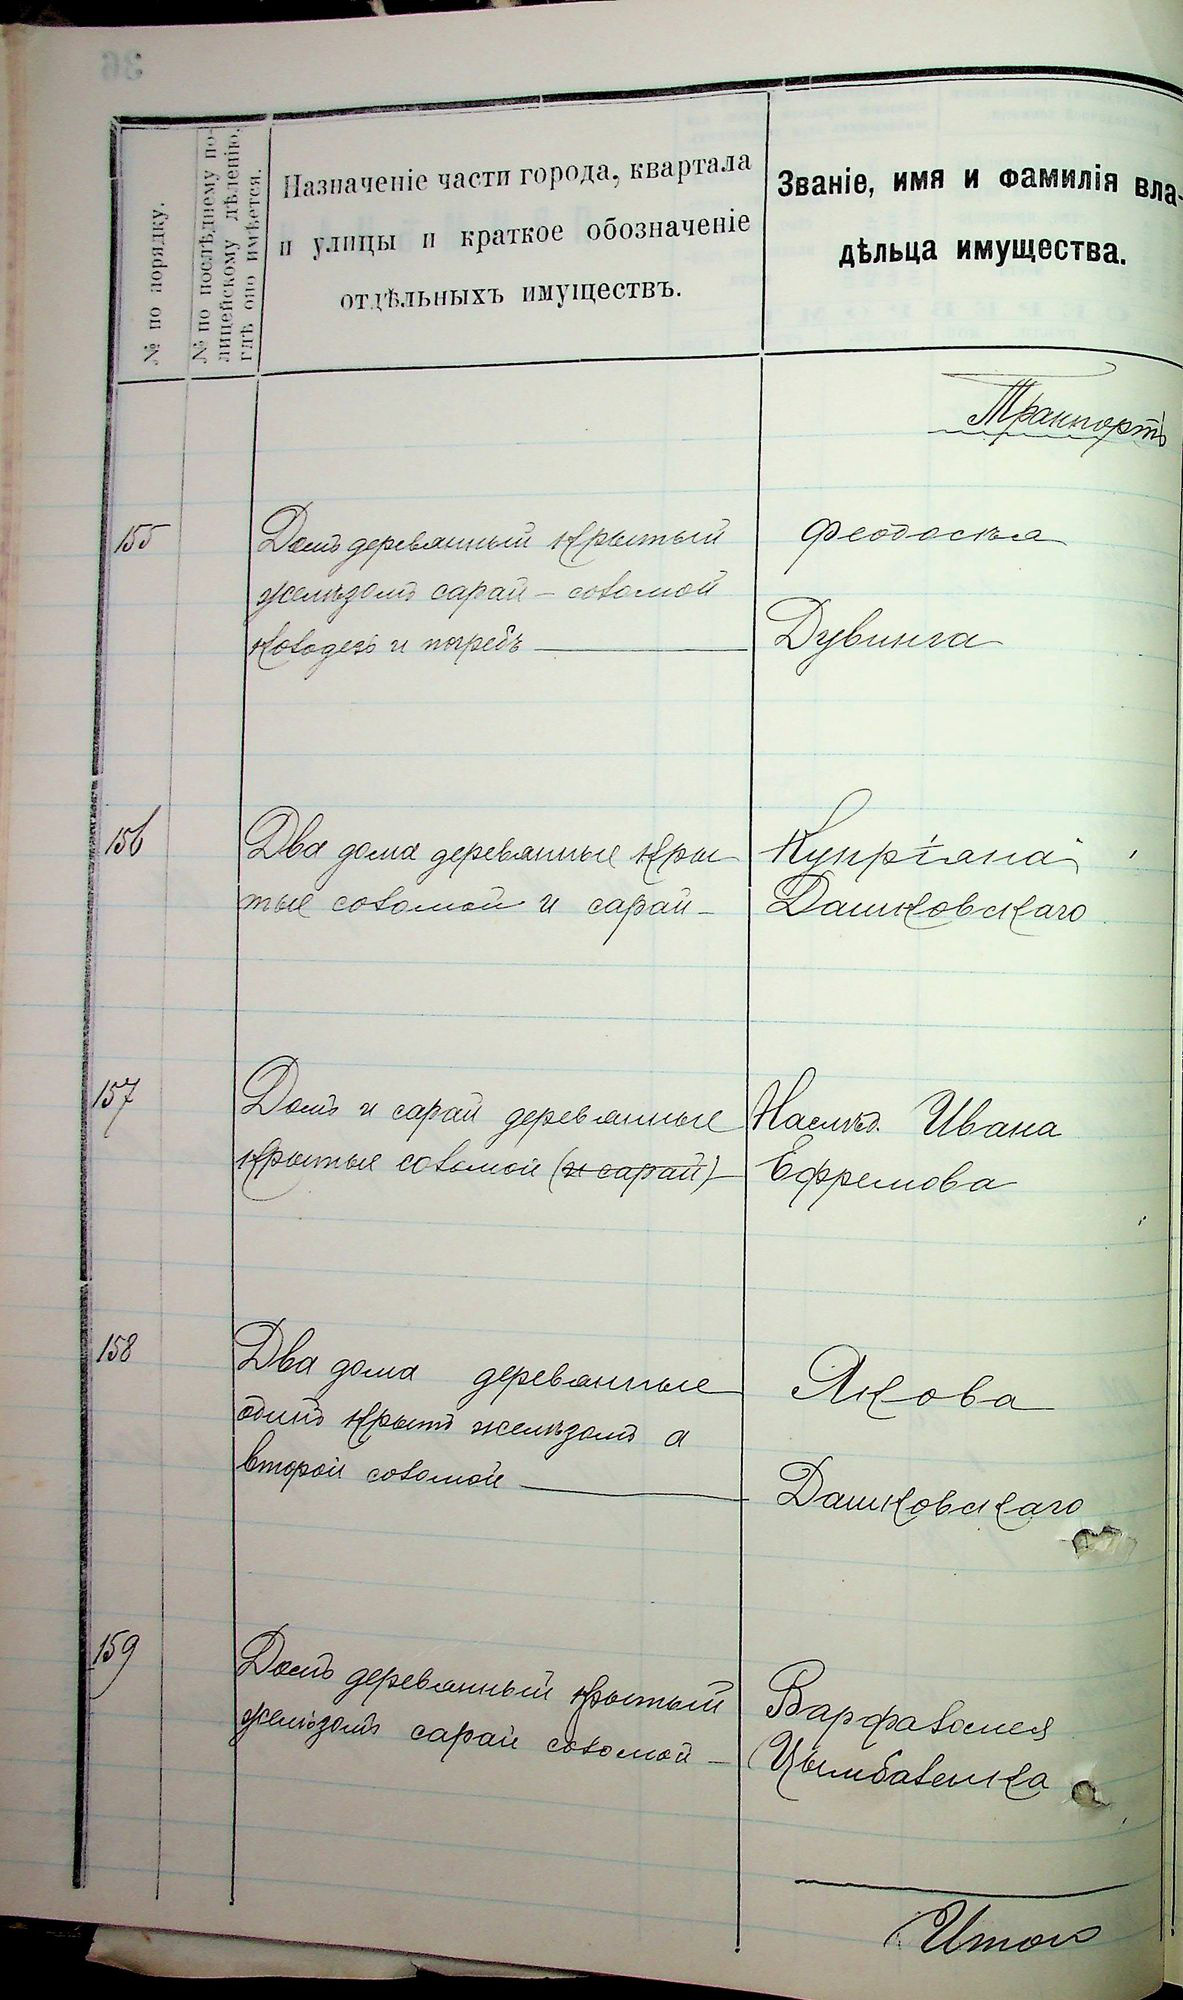 № по порядку.
№ по послѣднему по-
лицейскому дѣленію,
гдѣ оно имѣется.
Назначеніе части города, квартала
и улицы и краткое обозначеніе
отдѣльныхъ имуществъ.
Званіе, имя и фамилія вла-
дѣльца имущества.
Транпортъ
155
Домъ деревянный крытый
желѣзомъ сарай – соломой
колодезь и погребъ
Феодосія
Дувинга
156
Два дома деревянные кры
тые соломой и сарай –
Купріяна
Дашковскаго
157
Домъ и сарай деревянные
крытые соломой (и сарай) –
Наслѣд. Ивана
Ефремова
158
Два дома деревянные
одинъ крытъ желѣзомъ а
второй соломой
Якова
Дашковскаго
159
Домъ деревянный крытый
желѣзомъ сарай соломой –
Варфаломея
Цымбаленка
Итого
36